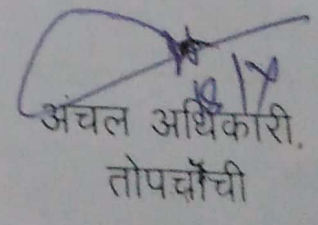 अंचल अधिकारी.
तोपचाँची